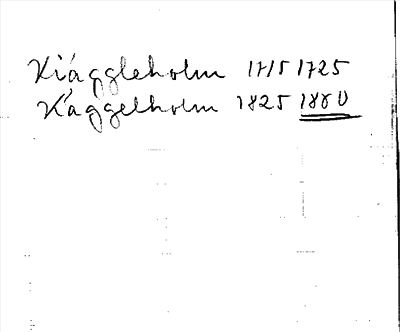 Kiäggleholm 1715 1725
Käggelholm 1825 1860